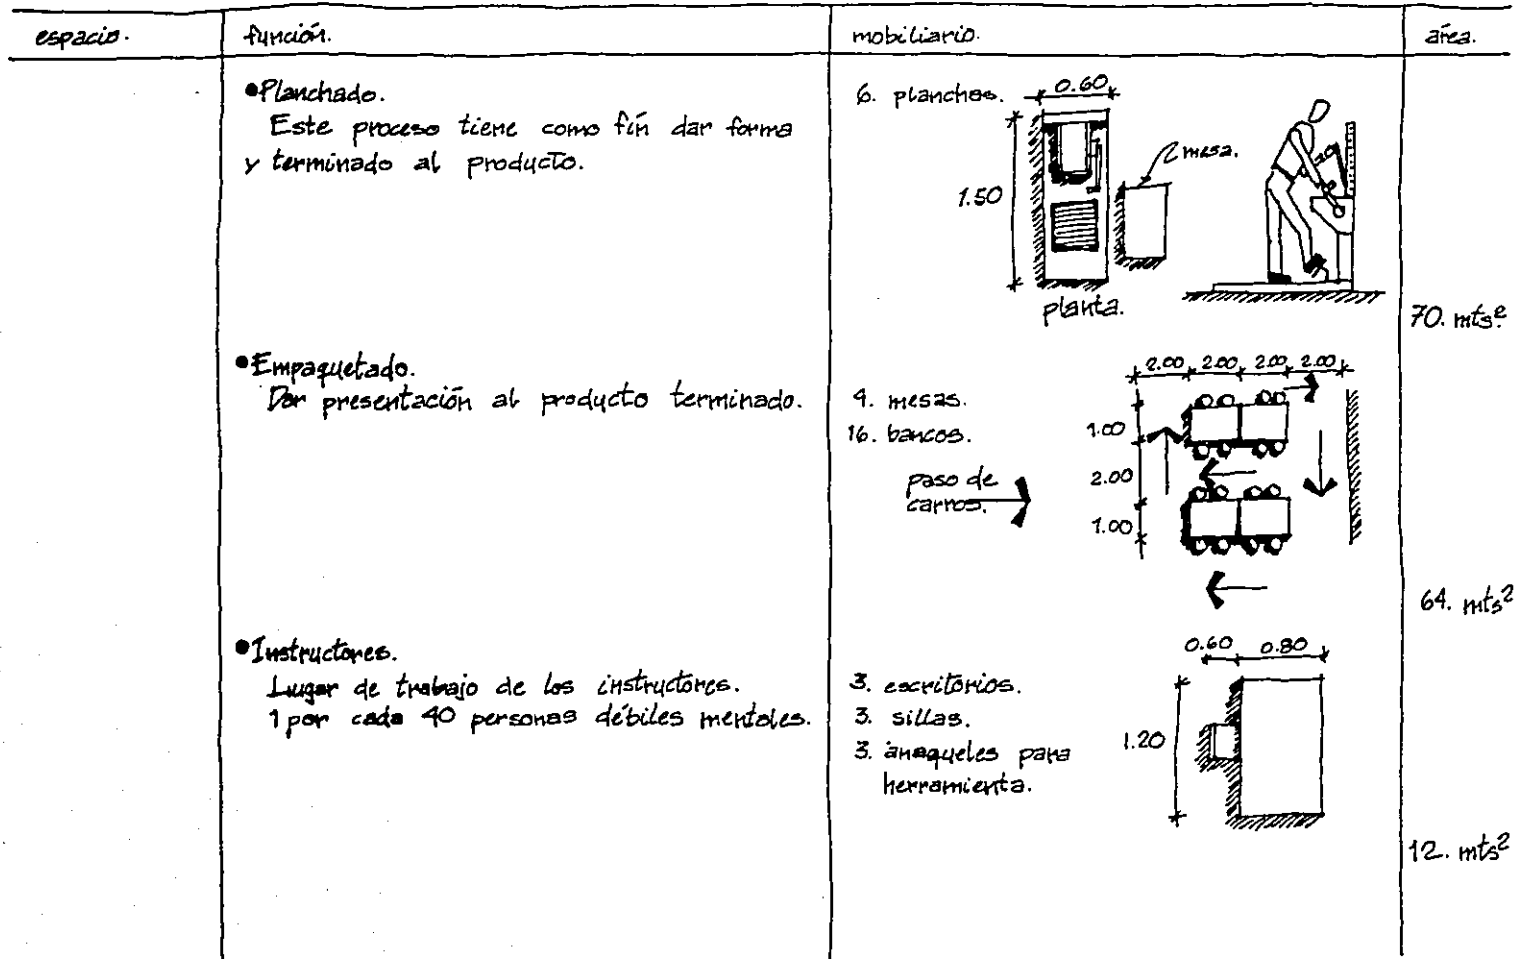 espacio.
función.
mobiliario.
área.
•Planchado.
Este proceso tiene como fin dar forma
y terminado al producto.
6. planchas.
0.60
1.50
mesa.
planta.
70. mts²
•Empaquetado.
Dar presentación al producto terminado.
4. mesas.
16. bancos.
paso de
carros.
2.00 2.00 2.00 2.00
1.00
2.00
1.00
64. mts²
•Instructores.
Lugar de trabajo de los instructores.
1 por cada 40 personas débiles mentales.
3. escritorios.
3. sillas.
3. anaqueles para
herramienta.
0.60 0.80
1.20
12. mts²